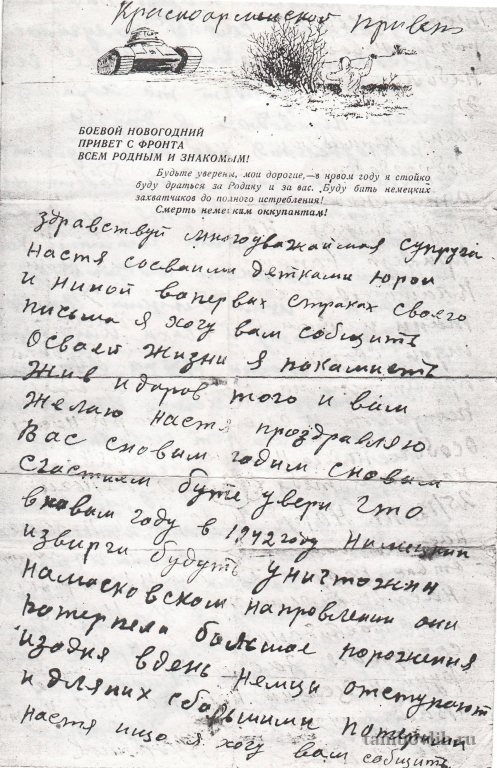 Красноармейской привет
БОЕВОЙ НОВОГОДНИЙ
ПРИВЕТ С ФРОНТА
ВСЕМ РОДНЫМ И ЗНАКОМЫМ!
Будьте уверены, мои дорогие,—в новом году я стойко
буду драться за Родину и за вас. Буду бить немецких
захватчиков до полного истребления!
Смерть немецким оккупантам!
здравствуй многоуважаймая супруга
Настя сосваими детками юрои
и Ниной вапервых страках своего
письма я хочу вам собщить
Освоей жизни я покамисть
Жив идаров того и вам
желаю настя проздравляю
Вас сновым годим сновым
счастиям буте увери что
вновам году в 1942 году Немецкии
извирги будуть уничтожин
намосковском напровлении они
потерпела большое порожения
изодня вдень немци отступают
и для них сбольшими потерями
настя ищо я хочу вам собщить
tambovlib.ru